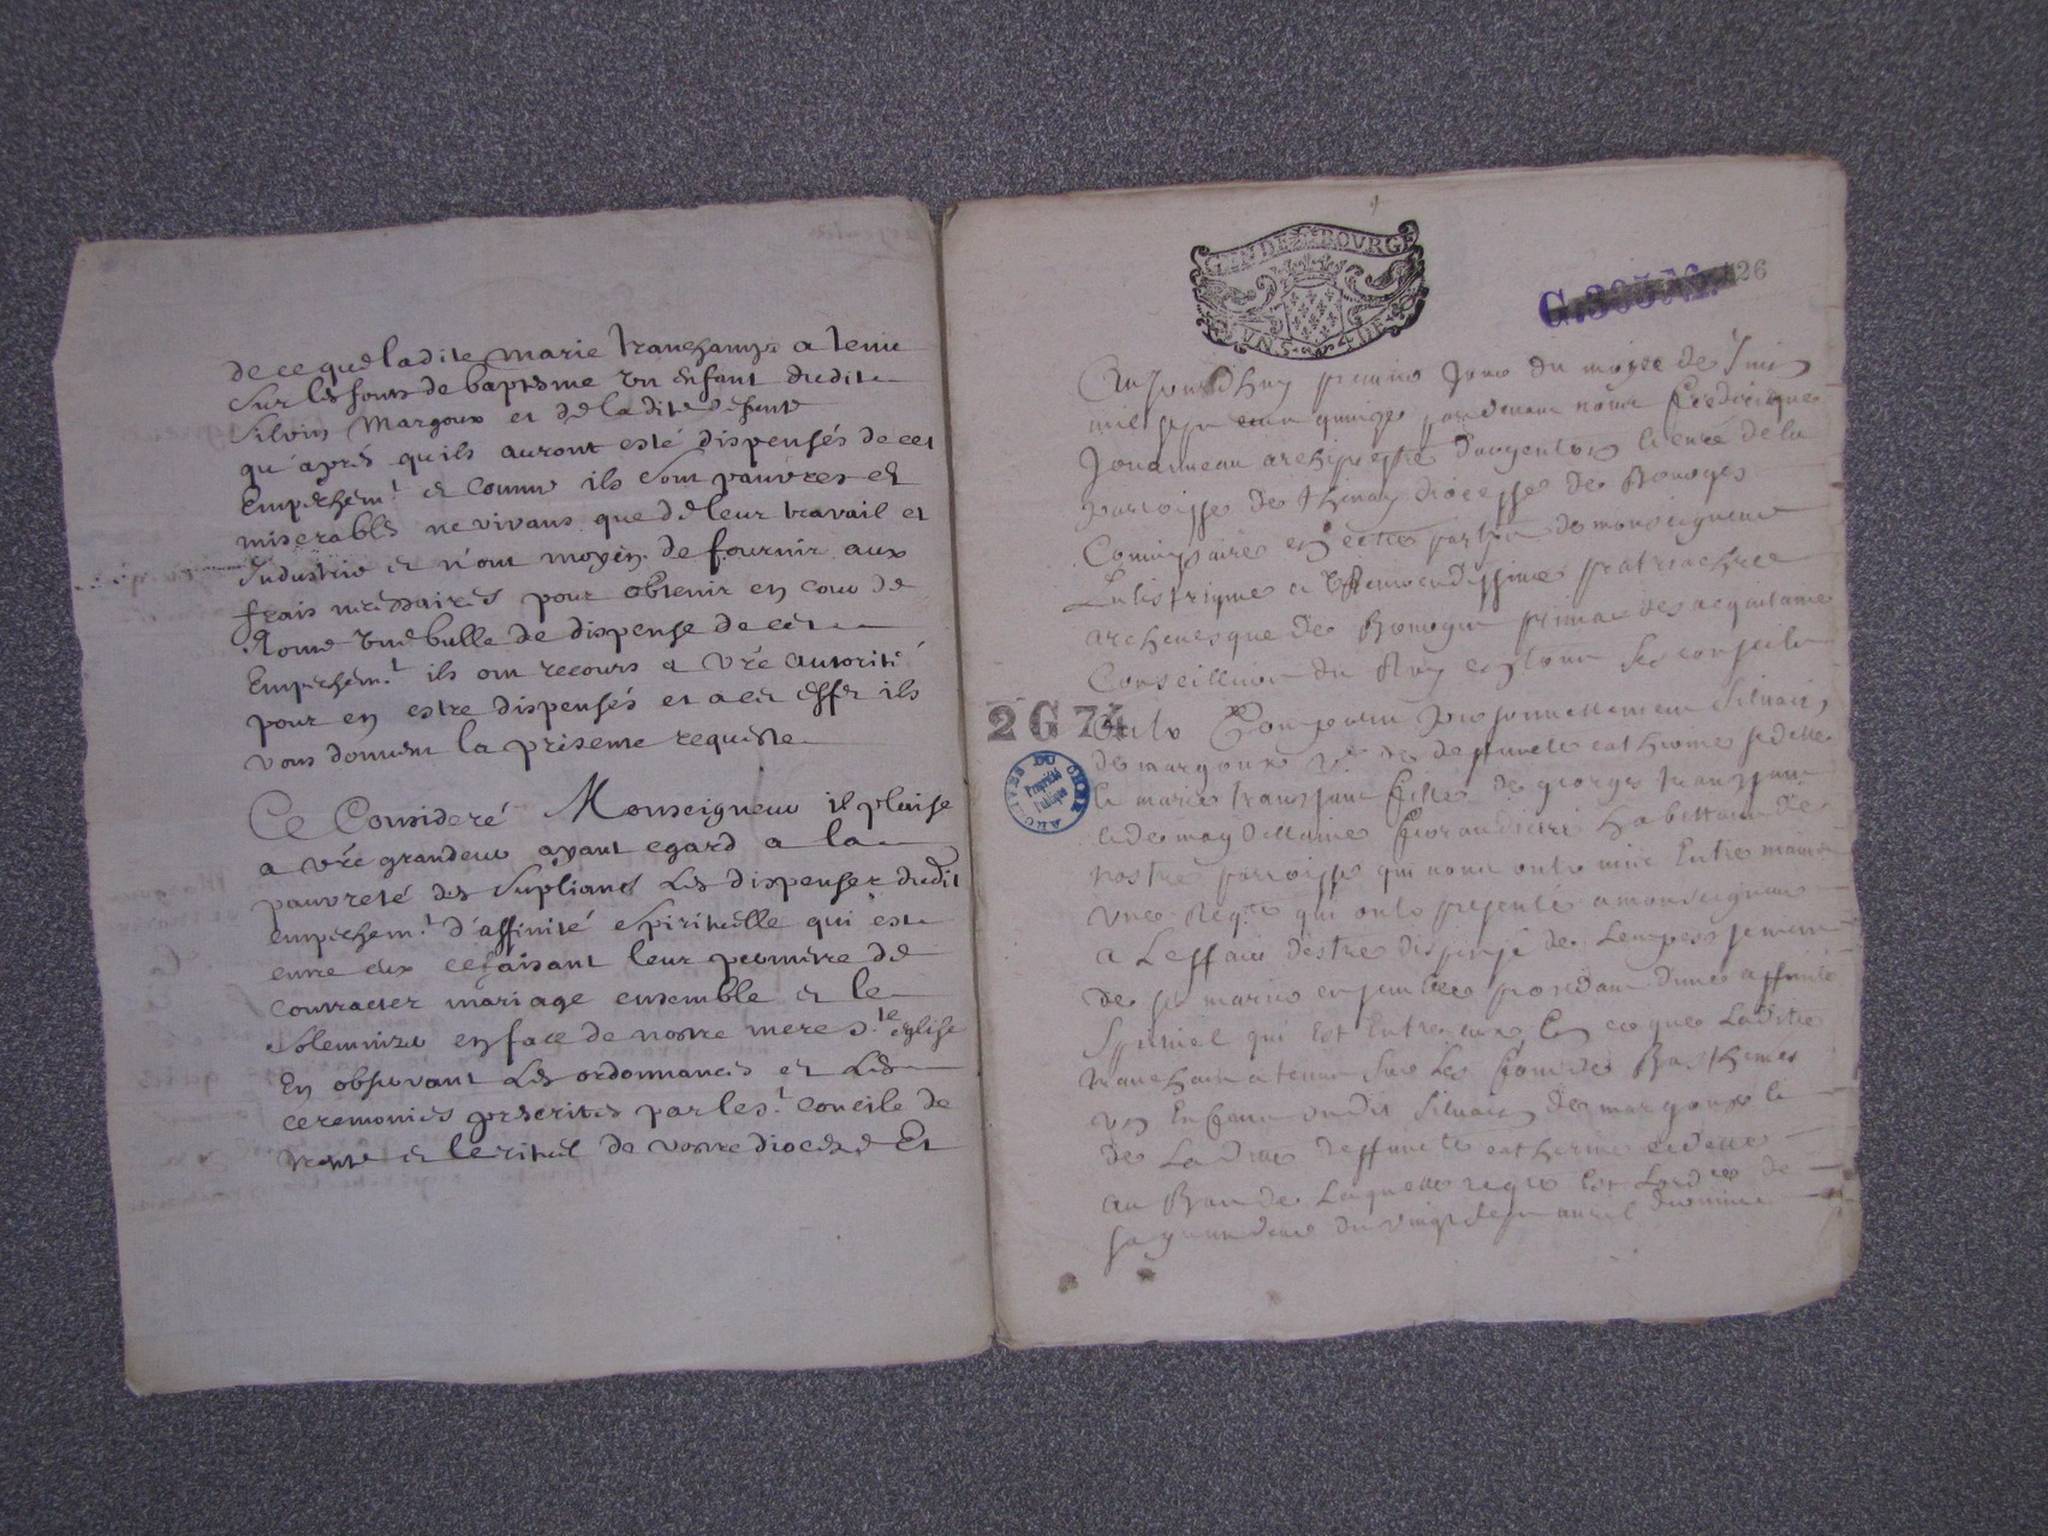 de ce que ladite marie tranchamp a tenu
sur les fonts de baptesme un enfant dudit
silvin Margoux et de ladite defunte
qu'aprés quils auront esté dispensés de cet
Empeschem.t et comme ils sont pauvres et
miserables ne vivans que de leur travail et
Industrie et n'ont moyen de fournir aux
frais necessaires pour obtenir en cour de
Rome une bulle de dispense de cet
Empeschem.t ils ont recours a v're autorité
pour en estre dispensés et a cet effet ils
vous donnent la presente requeste
Ce Consideré Monseigneur il plaise
a v're grandeur ayant egard a la
pauvreté des supliants les dispenser dudit
empeschem.t d'affinité spirituelle qui est
entre eux ce faisant leur permettre de
contracter mariage ensemble et le
solemnizer en face de nostre mere s.te eglise
En observant les ordonnances et les
ceremonies prescrites par le s.t concile de
trente et le rituel de vostre diocese Et
GEN DE BOVRGE
VN S 4 DE
G. 26
Aujourdhuy premier Jour du moyse de Juin
mil sept cent quinze pardevant nous Frederique
Jouanneau archiprestre dargenton le curé de la
parroisse de thenay diocesse de Bourges
Commissaire en cette partye de monseigneur
Lilistrisme et Reverendissime patriachee
archevesque de Bourges primat des acquitaine
Conseillier du Roy en tous ses conseils
2 G 74
ARCHIVES DU CHER
Propriété
Publique
Ont Comparu personnellement Silvain
de margoux de deffuncte catherine
la marie transjant fille de georges transjant
habittant de
nostre parroisse qui nous ont mie Entre mains
une Reqte qui onts presenté a monseigneur
a Leffaict destre dispensé de Lempessement
de se marier ensemblee prosedant dune affinité
Spirituel qui Est Entre eux En ce que Ladite
tranchant a tenue sur Les fons de Bastheme
un Enfant dudit Silvain de margoux
de Ladite deffuncte catherine
au Bas de Laquelle reqte Est Lordre de
sa grandeur du vingt sept avril dernier